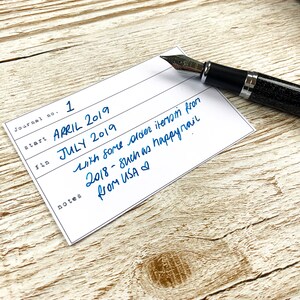 Journal no. 1
start APRIL 2019
fin JULY 2019
notes with some older items in from
2018 - such as happy mail
from USA ♡